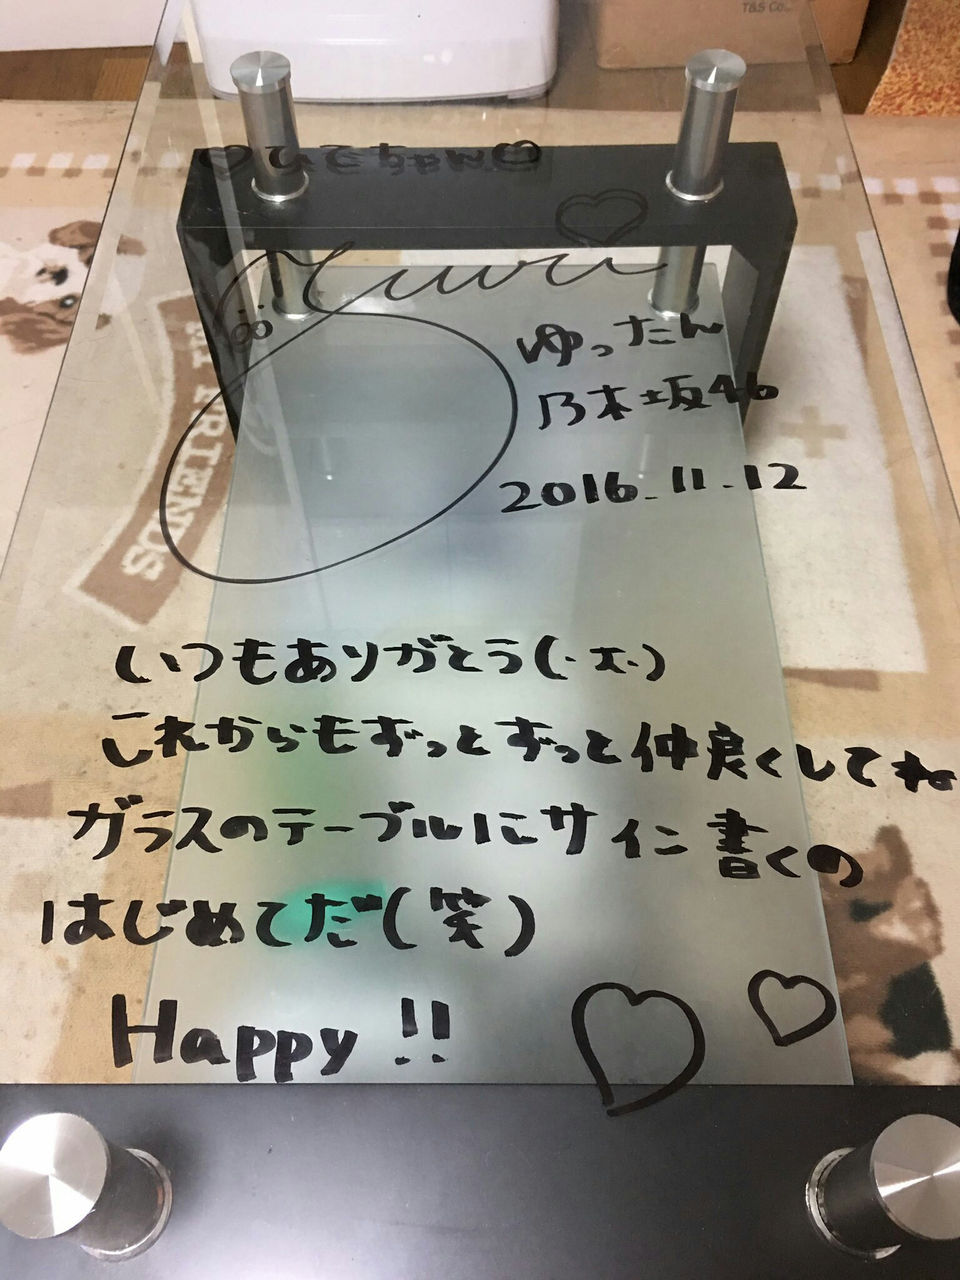 T&S Co.,
♡ひでちゃん♡
ゆったん
乃木坂46
2016.11.12
FRIENDS
いつもありがとう(･ㅈ･)
これからもずっとずっと仲良くしてね
ガラスのテーブルにサイン書くの
はじめてだ(笑)
Happy !!